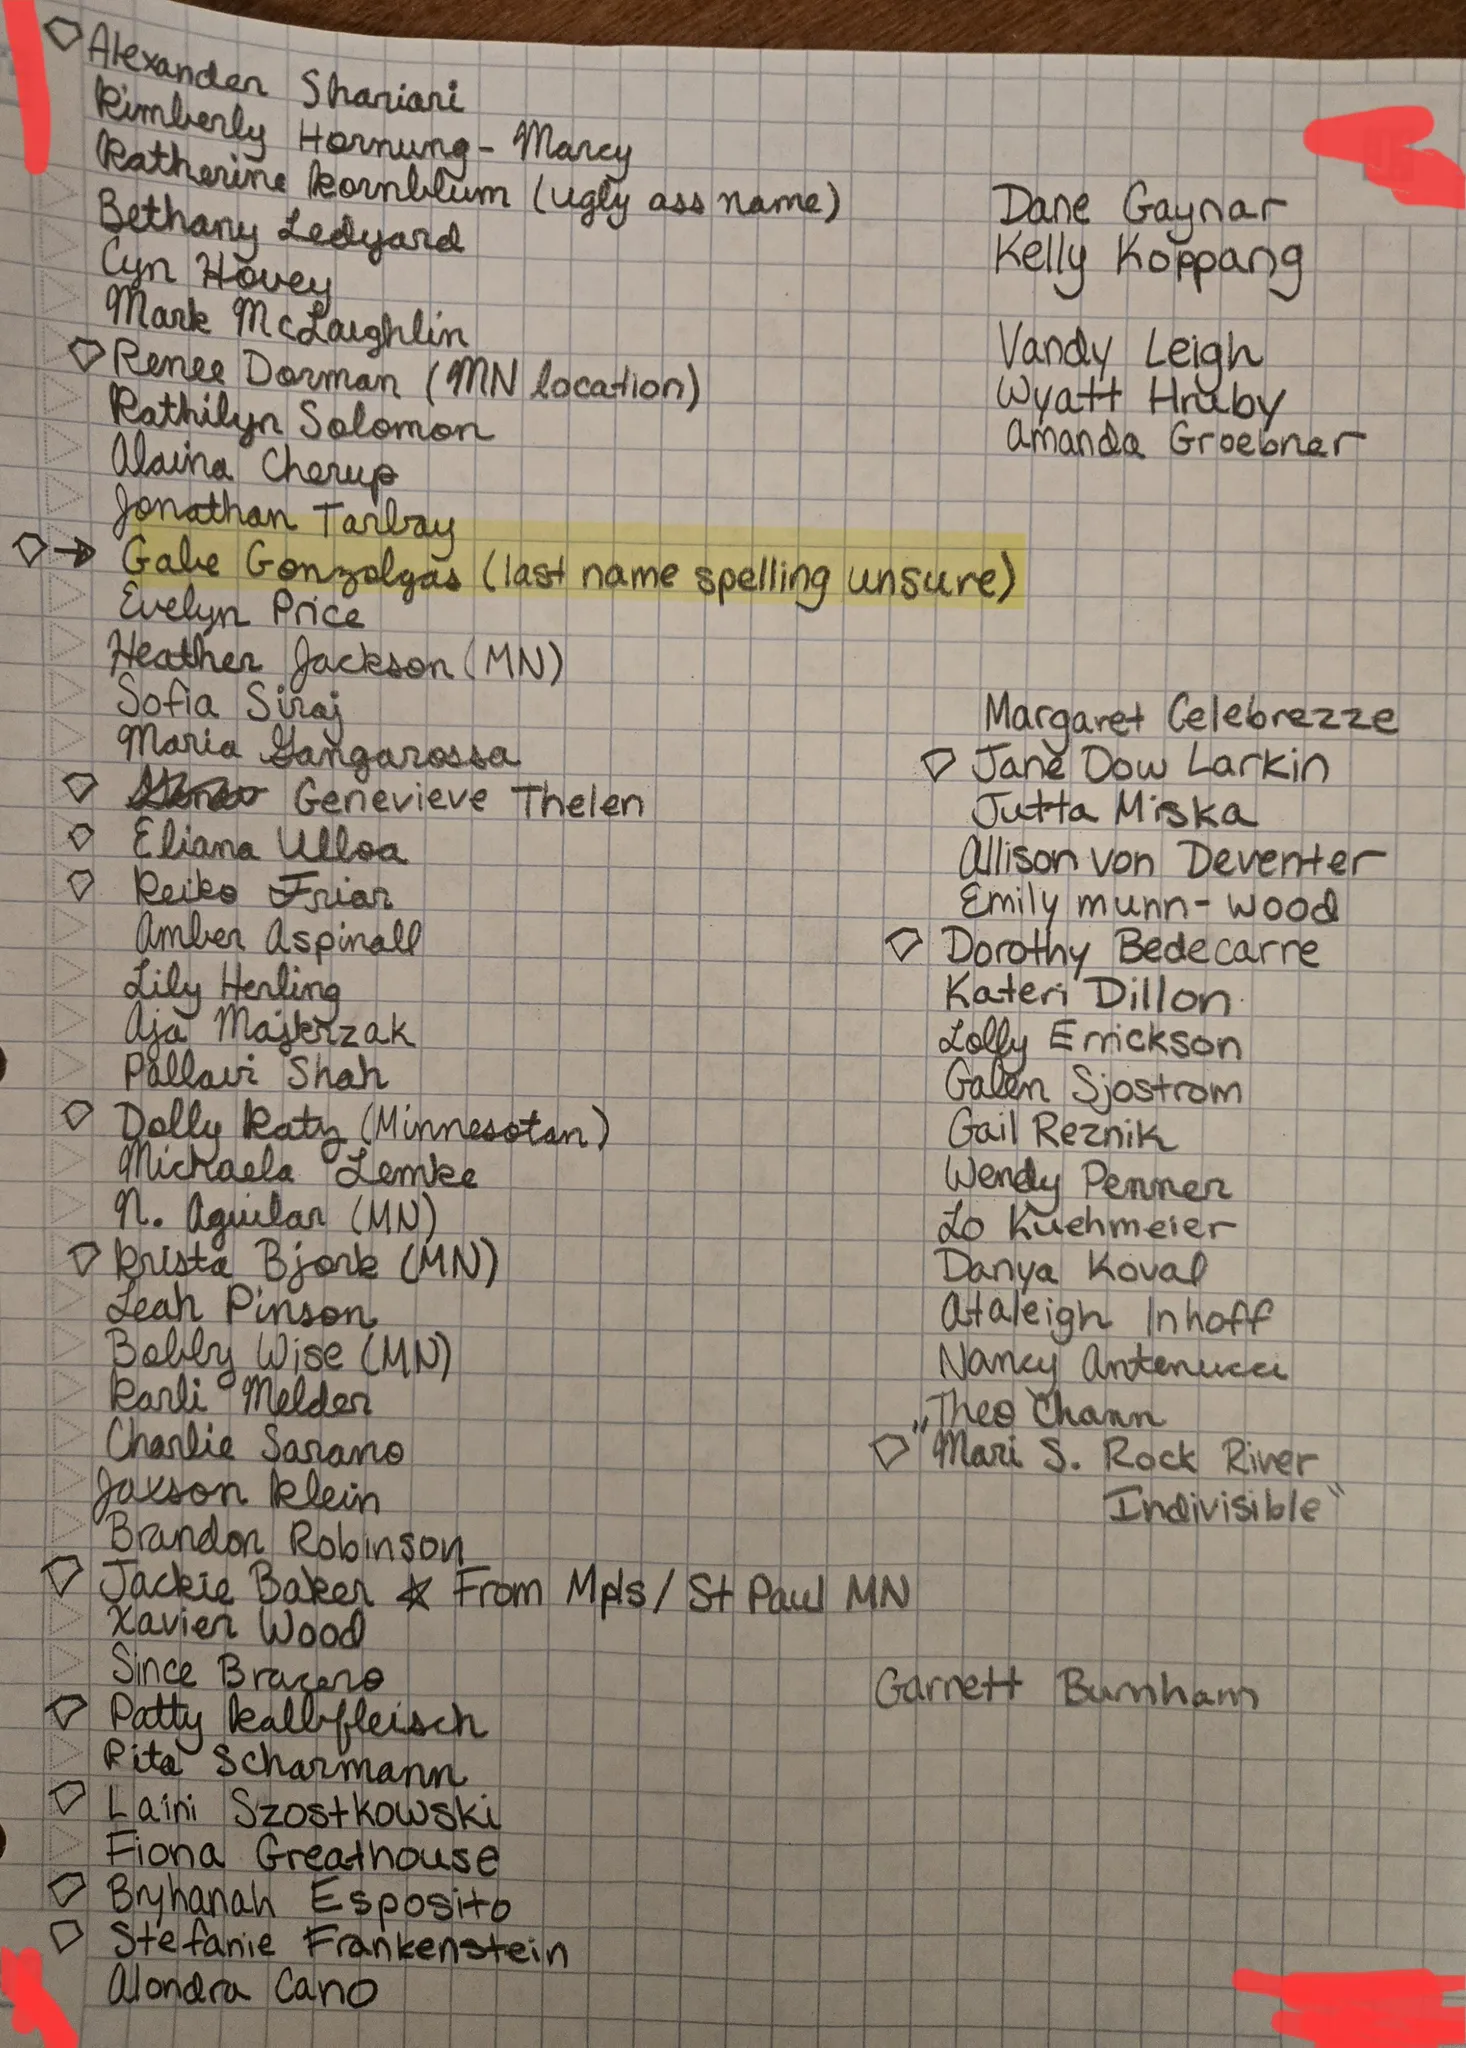 Alexander Shariari
Kimberly Hornung-Marcy
Katherine Kornblum (ugly ass name)
Bethany Ledyard
Cyn Hovey
Mark McLaughlin
Renee Dorman (MN location)
Kathilyn Solomon
Alaina Cherup
Jonathan Tarbay
Gabe Gonzolgas (last name spelling unsure)
Evelyn Price
Heather Jackson (MN)
Sofia Siraj
Maria Gangarossa
Genevieve Thelen
Eliana Ulloa
Keiko Friar
Amber Aspinall
Lily Herling
Aja Majkrzak
Pallavi Shah
Dolly Katz (Minnesotan)
Mickaela Lemke
N. Aguilar (MN)
Krista Bjork (MN)
Leah Pinson
Bobby Wise (MN)
Karli Melder
Charlie Sarano
Jaxson Klein
Brandon Robinson
Jackie Baker ☆ From Mpls/St Paul MN
Xavier Wood
Since Bracero
Patty Kalbfleisch
Rita Scharmann
Laini Szostkowski
Fiona Greathouse
Bryhanah Esposito
Stefanie Frankenstein
Alondra Cano
Dane Gaynar
Kelly Koppang
Vandy Leigh
Wyatt Hruby
Amanda Groebner
Margaret Celebrezze
Jane Dow Larkin
Jutta Miska
Allison von Deventer
Emily munn-wood
Dorothy Bedecarre
Kateri Dillon
Lolly Errickson
Galen Sjostrom
Gail Reznik
Wendy Penner
Lo Kuehmeier
Danya Koval
Ataleigh Inhoff
Nancy Antenucci
Theo Chann
"Mari S. Rock River
Indivisible"
Garnett Burnham